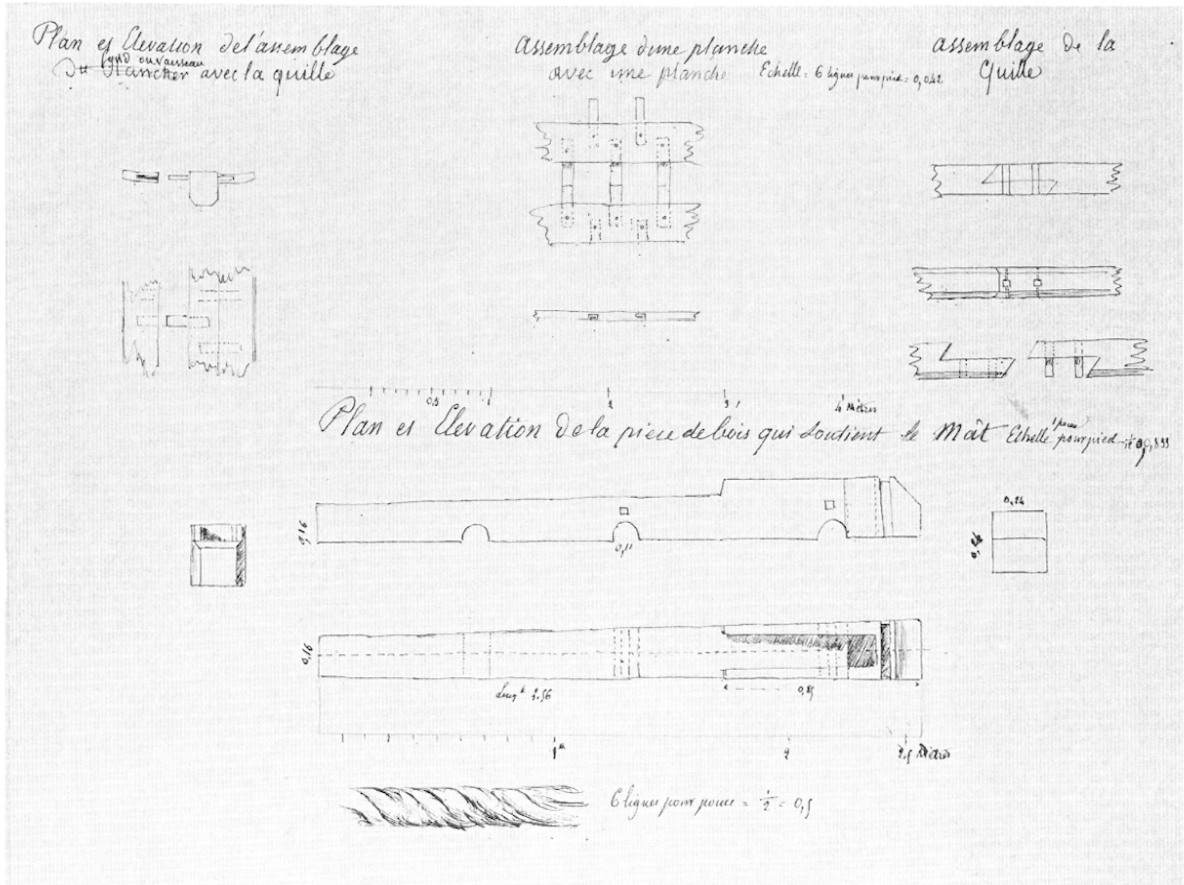 Plan et Elevation de l'assemblage
fond ou vaisseau
Du Plancher avec la quille
assemblage d'une planche
avec une planche Echelle = 6 lignes pour pied = 0,042
assemblage de la
Quille
0,5 1 2 3 4 Mètres
Plan et Elevation de la piece de bois qui soutient le Mât Echelle 1 pouce pour pied
0,16
0,11
0,24
0,26
0,16
Long.r 2.56
0,85
1m 2 2,5 Mètres
6 lignes pour pouce = 1/2 = 0,5